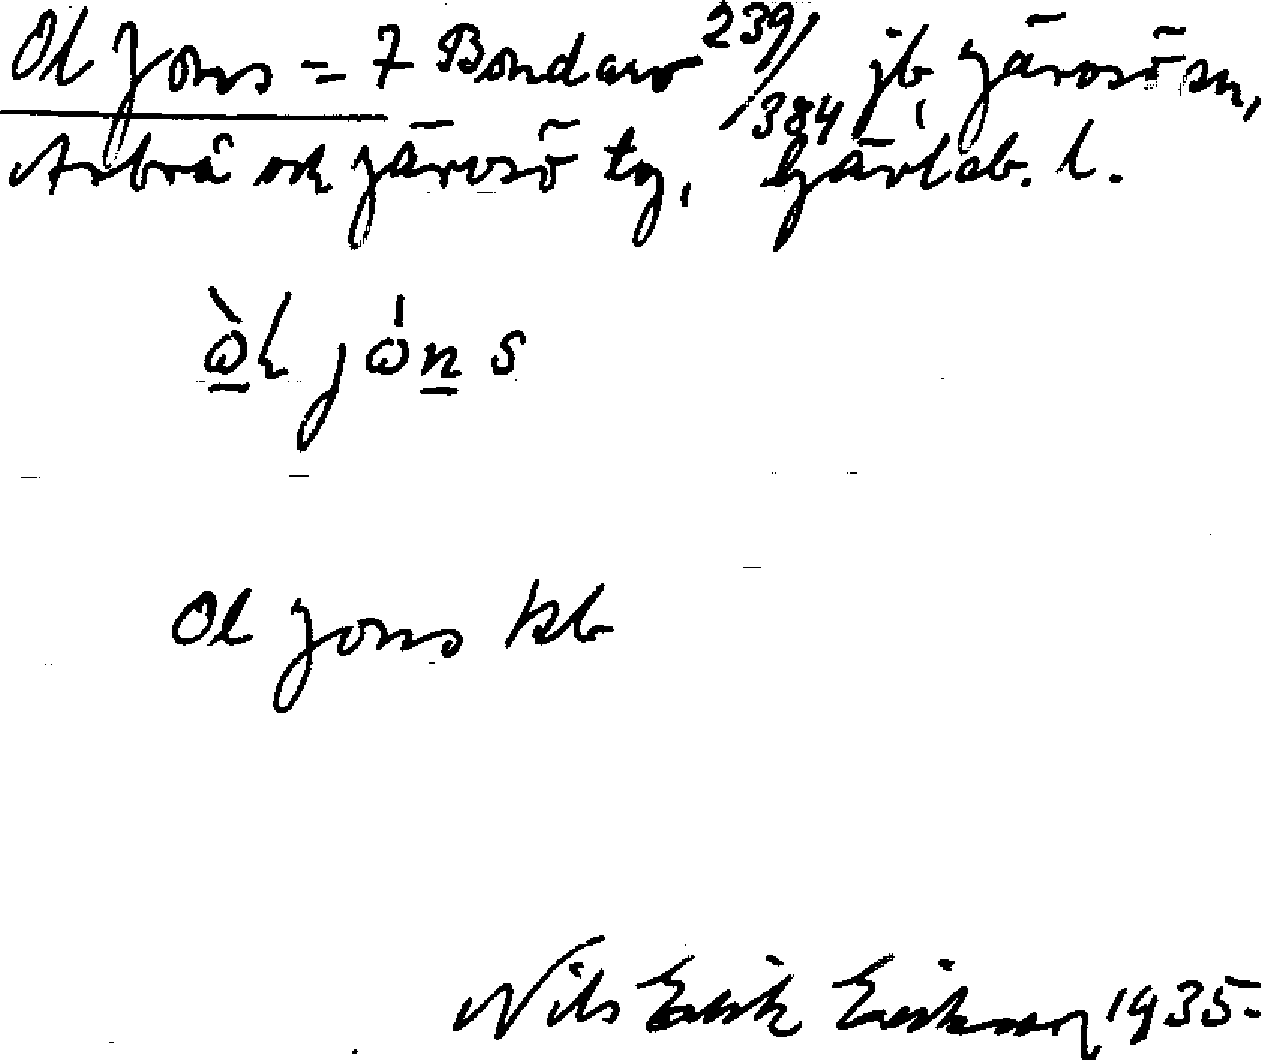 Ol Jons = 7 Bondarv 239/384 jb, Järvsö sn,
Arbrå och Järvsö tg, Gävleb. l.
Ol Jons kb
Nils Erik Eriksson 1935.